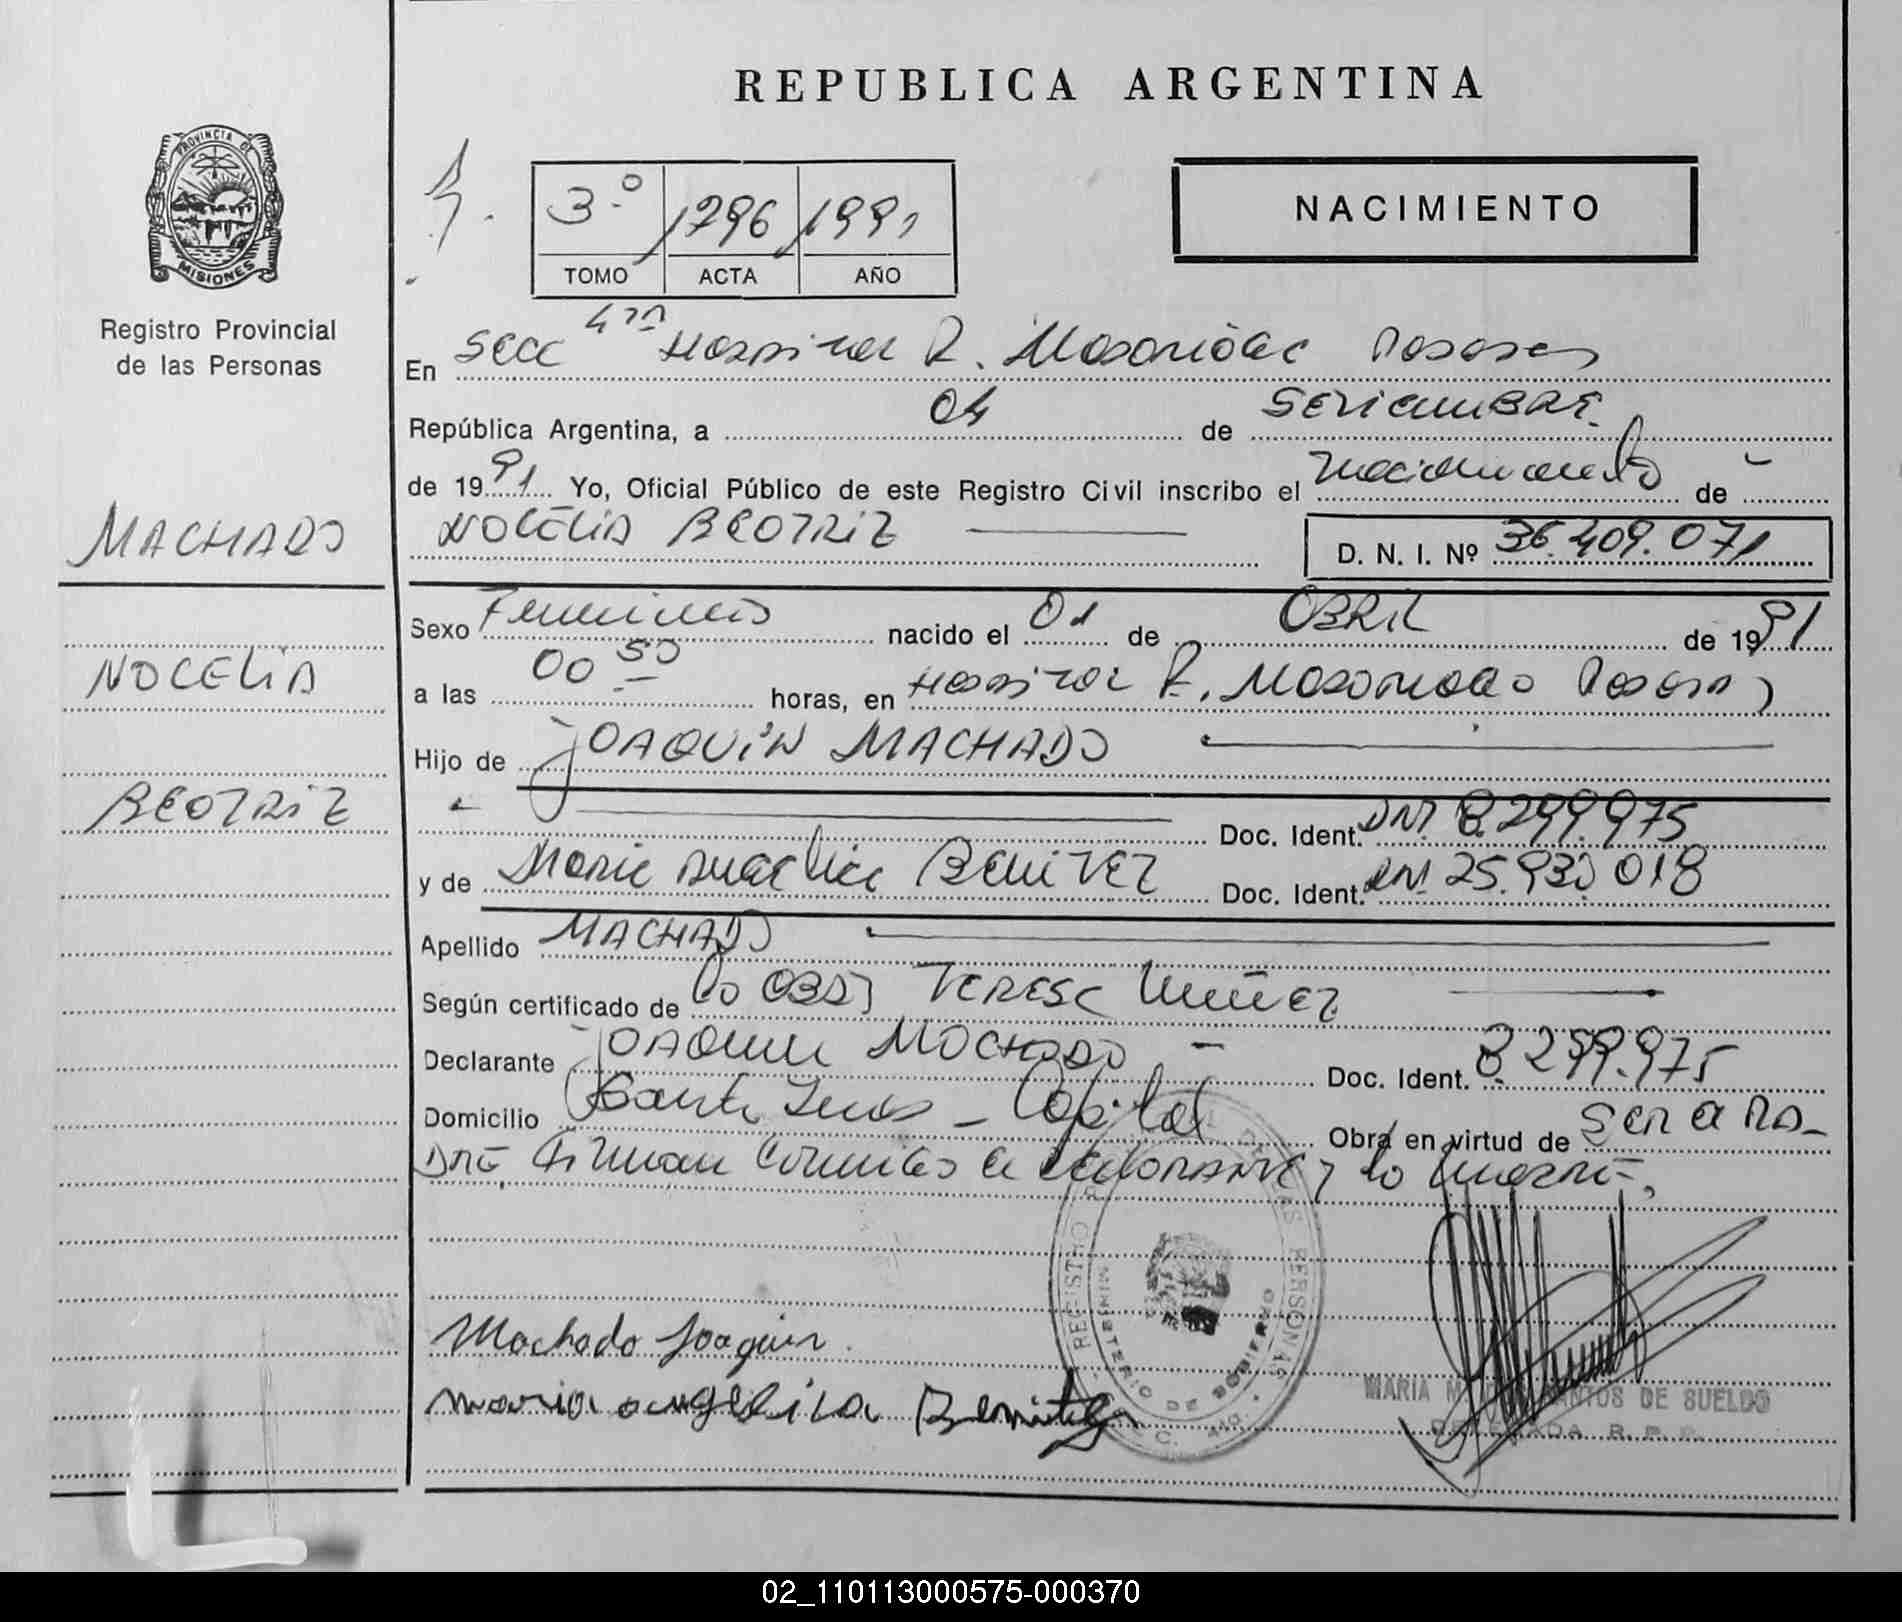 REPUBLICA ARGENTINA
PROVINCIA DE
MISIONES
Registro Provincial
de las Personas
3º 1296 1991
TOMO ACTA AÑO
NACIMIENTO
En Secc 4ta Hospital R. Madariaga Posadas
República Argentina, a 04 de SETIEMBRE
de 1991. Yo, Oficial Público de este Registro Civil inscribo el nacimiento de
NOELIA BEATRIZ D. N. I. Nº 36.409.071
MACHADO
Sexo Femenino nacido el 01 de ABRIL de 1991
NOELIA
a las 00 50 horas, en Hospital R. Madariaga Posadas
Hijo de JOAQUÍN MACHADO
BEATRIZ
Doc. Ident. DNI. 8.299.975
y de Maria Angelica BENITEZ Doc. Ident. DNI. 25.930.018
Apellido MACHADO
Según certificado de la OBST TERESA
Declarante JOAQUIN MACHADO Doc. Ident. 8.299.975
Domicilio Santa Capital Obra en virtud de SER el PA-
DRE, firman el declarante y la madre.
REGISTRO DE LAS PERSONAS
MINISTERIO DE GOBIERNO
Machado Joaquin
maria angelica Benitez
MARIA SANTOS DE SUELDO
DELEGADA R. P. P.
02_110113000575-000370